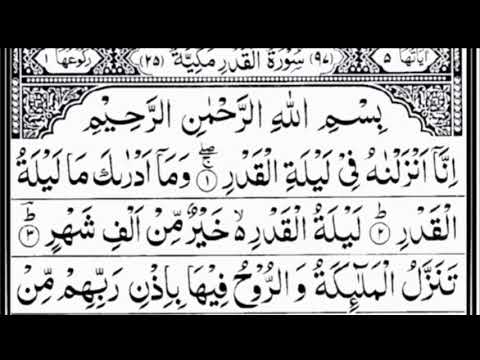 اٰيَاتُهَا ٥ (٩٧) سُوْرَةُ الْقَدْرِ مَكِّيَّةٌ (٢٥) رُكُوْعُهَا ١
بِسْمِ اللّٰهِ الرَّحْمٰنِ الرَّحِيْمِ
اِنَّاۤ اَنْزَلْنٰهُ فِيْ لَيْلَةِ الْقَدْرِ ۚۖ ١ وَمَاۤ اَدْرٰىكَ مَا لَيْلَةُ
الْقَدْرِ ؕ ٢ لَيْلَةُ الْقَدْرِ ۙ۬ خَيْرٌ مِّنْ اَلْفِ شَهْرٍ ؕ ٣
تَنَزَّلُ الْمَلٰٓئِكَةُ وَ الرُّوْحُ فِيْهَا بِاِذْنِ رَبِّهِمْ مِّنْ